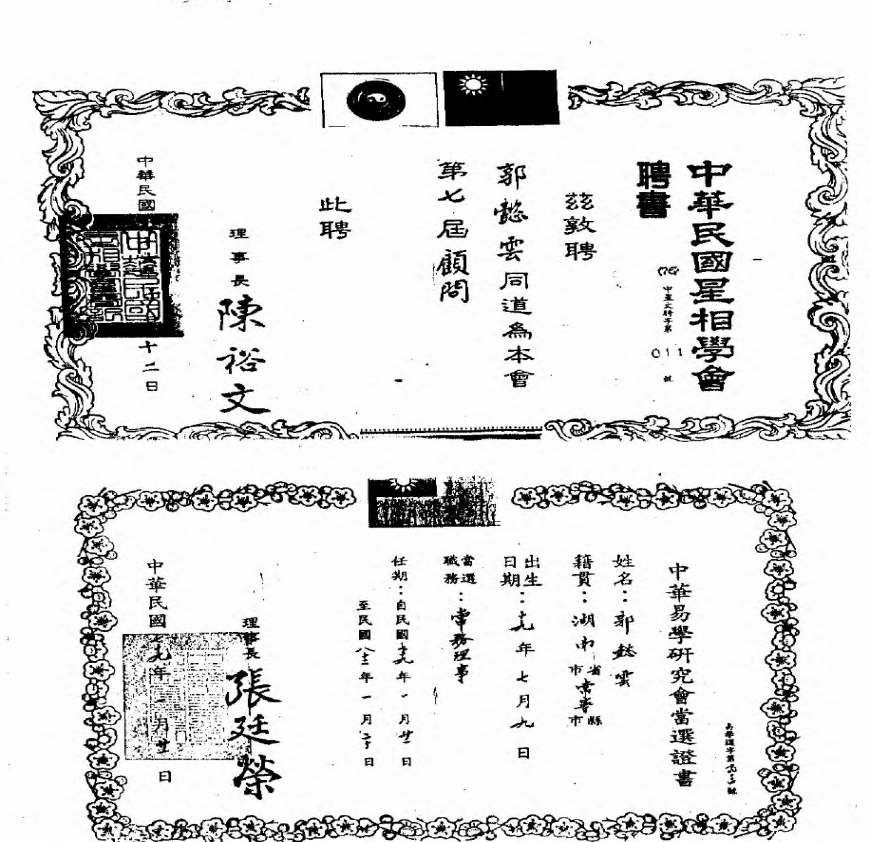 中華民國星相學會
聘書
(76)中星文聘字第011號
茲敦聘
郭懿雲同道為本會
第七屆顧問
此聘
理事長 陳裕文
中華民國
十二日
中華易學研究會當選證書
姓名：郭懿雲
籍貫：湖南省市常寧縣市
出生日期：十九年七月九日
當選職務：常務理事
任期：自民國七九年一月廿一日
至民國八十二年一月二十日
理事長 張廷榮
中華民國七九年一月廿一日